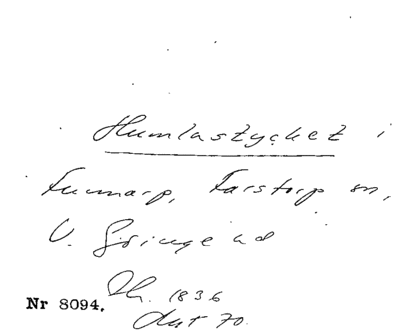 Humlastycket i
Funnarp, Farstorp sn,
V. Göinge hd
Lh. 1836
Akt 70.
Nr 8094.